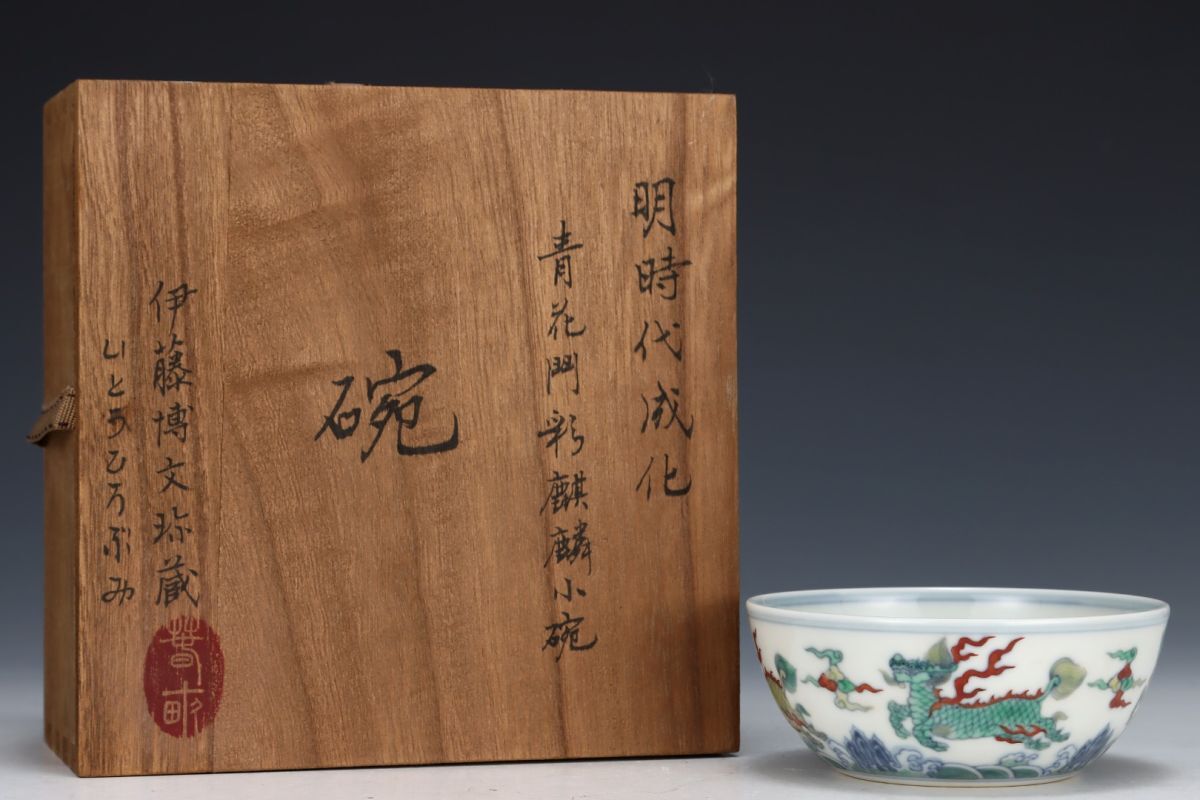 明時代成化
青花鬥彩麒麟小碗
碗
伊藤博文珎蔵
いとうひろぶみ
春畝